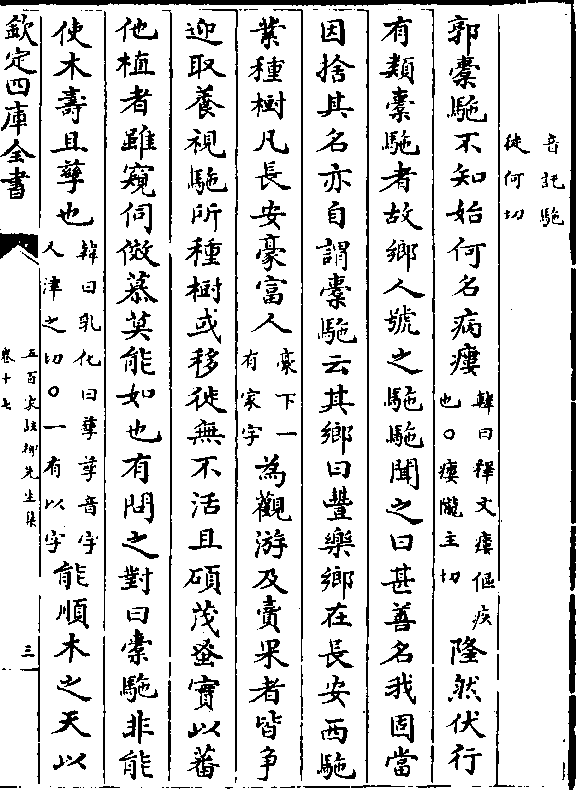 音託駞
徒何切
郭橐駞不知始何名病瘻韓曰釋文瘻傴疾也○瘻隴主切隆然伏行
有類橐駞者故鄉人號之駞駞聞之曰甚善名我固當
因捨其名亦自謂橐駞云其鄉曰豐樂鄉在長安西駞
業種樹凡長安豪富人豪下一有家字為觀游及賣果者皆争
迎取養視駞所種樹或移徙無不活且碩茂蚤實以蕃
他植者雖窺伺傚慕莫能如也有問之對曰橐駞非能
使木壽且孳也韓曰乳化曰孳孳音字人津之切○一有以字能順木之天以
欽定四庫全書
五百家註柳先生集
卷十七
三